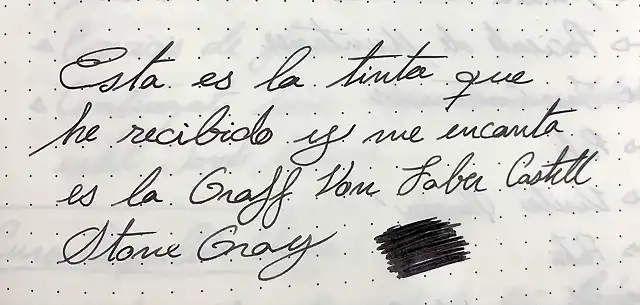 Esta es la tinta que
he recibido y me encanta
es la Graff Von Faber Castell
Stone Gray